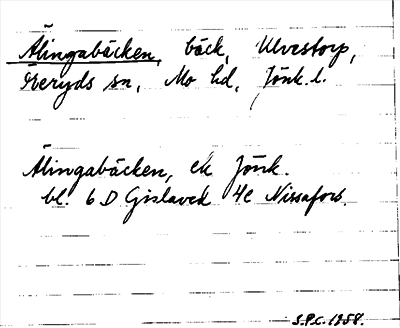 Älingabäcken, bäck, Ulvestorp,
Öreryds sn, Mo hd, Jönk. l.
Älingabäcken, ek Jönk.
bl. 6 D Gislaved 4e Nissafors.
S.P.C. 1958.